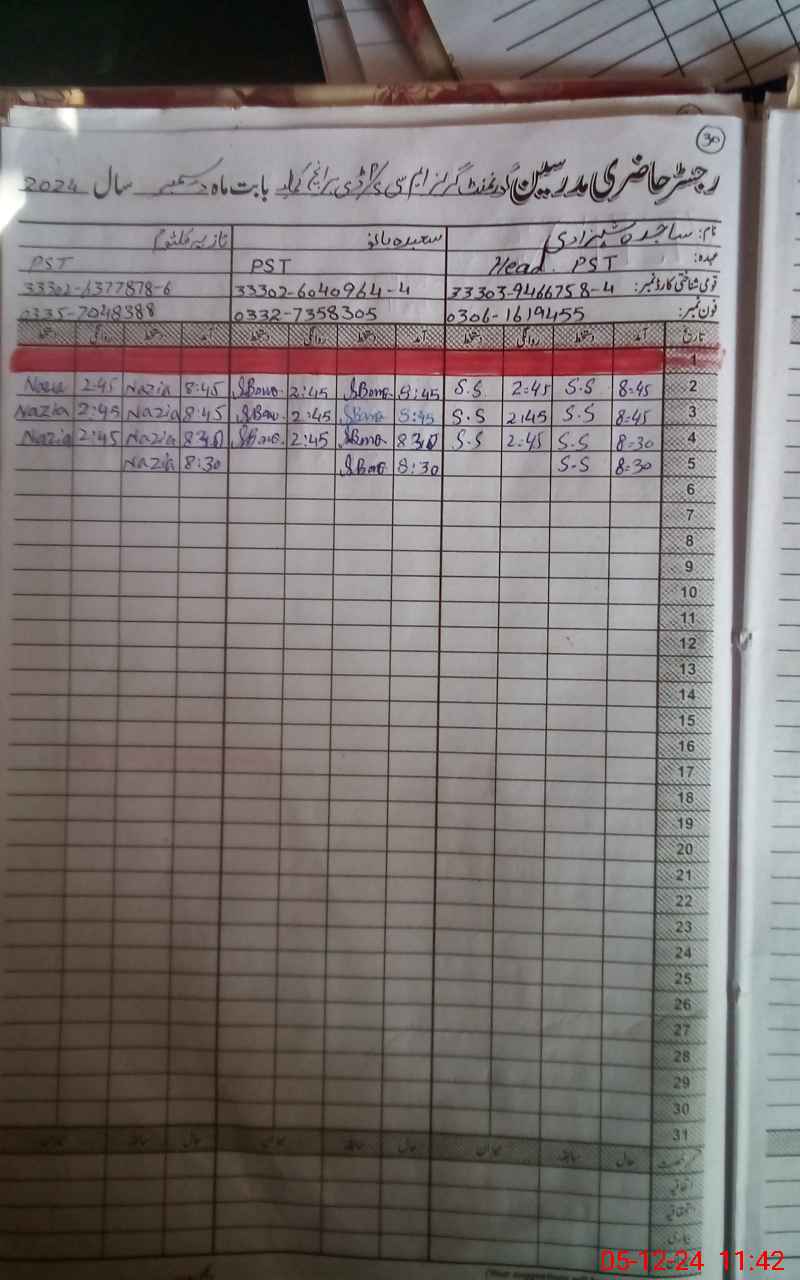 30
رجسٹر حاضری مدرسین گورنمنٹ گرلز ایم سی بابت ماہ دسمبر سال 2024
نام: ساجدہ شہزادی سعیدہ بانو نازیہ کلثوم
عہدہ: Head PST PST PST
قومی شناختی کارڈ نمبر: 33303-9466758-4 33302-6040964-4 33302-6377878-6
فون نمبر: 0306-1619455 0332-7358305 0335-7048388
تاریخ آمد دستخط روانگی دستخط آمد دستخط روانگی دستخط آمد دستخط روانگی دستخط
1
2 8=45 S.S 2=45 S.S 8:45 SBano 2:45 SBano 8:45 Nazia 2:45
3 8=45 S.S 2:45 S.S 8:45 SBano 2:45 SBano 8:45 Nazia 2:45 Nazia
4 8=30 S.S 2=45 S.S 830 SBano 2:45 SBano 830 Nazia 2:45 Nazia
5 8=30 S.S 8:30 SBano 8:30 Nazia
6
7
8
9
10
11
12
13
14
15
16
17
18
19
20
21
22
23
24
25
26
27
28
29
30
31
حال سابقہ میزان حال سابقہ میزان حال سابقہ میزان
اتفاقیہ
استحقاقیہ
بیماری
05-12-24 11:42